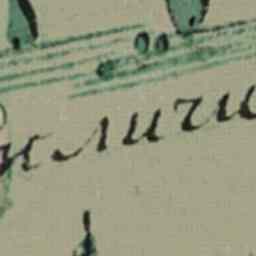 иличи